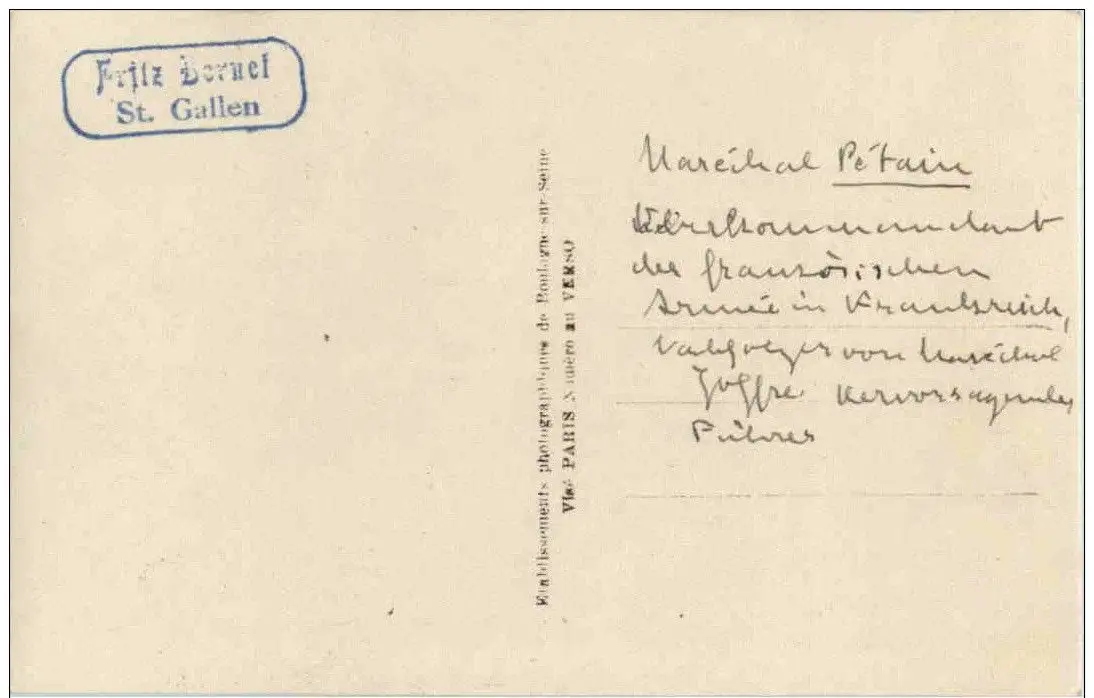 Fritz
St. Gallen
Etablissements photographiques de Boulogne-sur-Seine
Visé PARIS Numéro au VERSO
Maréchal Pétain
der französischen
Armée in Frankreich,
von Maréchal
Joffre. Hervorragender
Führer